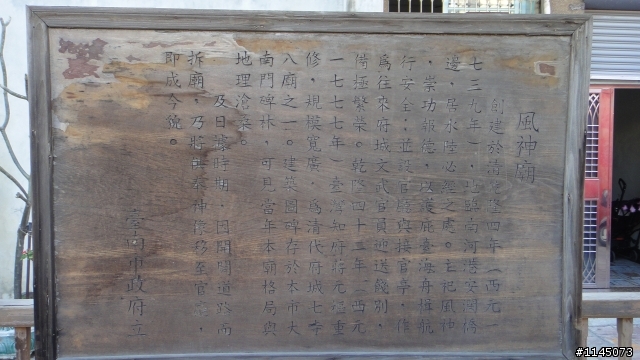 風神廟
創建於清乾隆四年（西元一
七三九年），地點南河港安瀾橋
邊，居水陸必經之處。主祀風神
，崇功報德，以護庇臺海舟楫航
行安全，並設官廳與接官亭，作
為往來府城文武官員迎送餞別，
備極繁榮。乾隆四十二年（西元
一七七七年）臺灣知府蔣元樞重
修，規模寬廣，為清代府城七寺
八廟之一。建築圖碑存於本市大
南門碑林，可見當年本廟格局與
地理滄桑。
及日據時期，因開闢道路而
拆廟，乃將神像移至官，
即成今貌。
臺南市政府立
#1145073